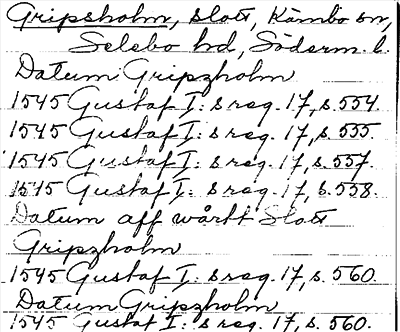 Gripsholm, slott, Kärnbo sn,
Selebo hd, Söderm. l.
Datum Gripzholm
1545 Gustaf I:s reg. 17, s. 554.
1545 Gustaf I:s reg. 17, s. 555.
1545 Gustaf I:s reg. 17, s. 557.
1545 Gustaf I:s reg. 17, s. 558.
Datum aff wårtt Slott
Gripzholm
1545 Gustaf I:s reg. 17, s. 560.
Datum Gripzholm
1545 Gustaf I:s reg. 17, s. 560.